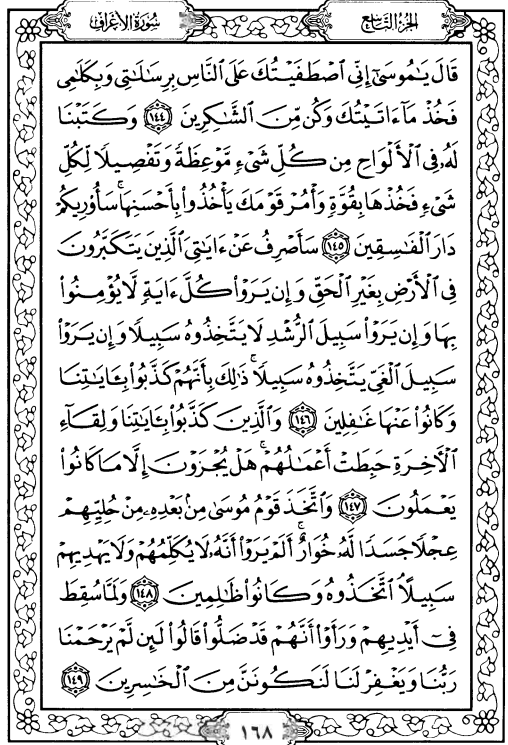 سُورَةُ الْأَعْرَافِ
الجُزْءُ التَّاسِعُ
قَالَ يَٰمُوسَىٰٓ إِنِّي ٱصْطَفَيْتُكَ عَلَى ٱلنَّاسِ بِرِسَٰلَٰتِي وَبِكَلَٰمِي
فَخُذْ مَآ ءَاتَيْتُكَ وَكُن مِّنَ ٱلشَّٰكِرِينَ ١٤٤ وَكَتَبْنَا
لَهُۥ فِي ٱلْأَلْوَاحِ مِن كُلِّ شَيْءٍ مَّوْعِظَةً وَتَفْصِيلًا لِّكُلِّ
شَيْءٍ فَخُذْهَا بِقُوَّةٍ وَأْمُرْ قَوْمَكَ يَأْخُذُوا۟ بِأَحْسَنِهَا ۚ سَأُو۟رِيكُمْ
دَارَ ٱلْفَٰسِقِينَ ١٤٥ سَأَصْرِفُ عَنْ ءَايَٰتِيَ ٱلَّذِينَ يَتَكَبَّرُونَ
فِي ٱلْأَرْضِ بِغَيْرِ ٱلْحَقِّ وَإِن يَرَوْا۟ كُلَّ ءَايَةٍ لَّا يُؤْمِنُوا۟
بِهَا وَإِن يَرَوْا۟ سَبِيلَ ٱلرُّشْدِ لَا يَتَّخِذُوهُ سَبِيلًا وَإِن يَرَوْا۟
سَبِيلَ ٱلْغَيِّ يَتَّخِذُوهُ سَبِيلًا ۚ ذَٰلِكَ بِأَنَّهُمْ كَذَّبُوا۟ بِـَٔايَٰتِنَا
وَكَانُوا۟ عَنْهَا غَٰفِلِينَ ١٤٦ وَٱلَّذِينَ كَذَّبُوا۟ بِـَٔايَٰتِنَا وَلِقَآءِ
ٱلْأَخِرَةِ حَبِطَتْ أَعْمَٰلُهُمْ ۚ هَلْ يُجْزَوْنَ إِلَّا مَا كَانُوا۟
يَعْمَلُونَ ١٤٧ وَٱتَّخَذَ قَوْمُ مُوسَىٰ مِنۢ بَعْدِهِۦ مِنْ حُلِيِّهِمْ
عِجْلًا جَسَدًا لَّهُۥ خُوَارٌ ۚ أَلَمْ يَرَوْا۟ أَنَّهُۥ لَا يُكَلِّمُهُمْ وَلَا يَهْدِيهِمْ
سَبِيلًا ٱتَّخَذُوهُ وَكَانُوا۟ ظَٰلِمِينَ ١٤٨ وَلَمَّا سُقِطَ
فِيٓ أَيْدِيهِمْ وَرَأَوْا۟ أَنَّهُمْ قَدْ ضَلُّوا۟ قَالُوا۟ لَئِن لَّمْ يَرْحَمْنَا
رَبُّنَا وَيَغْفِرْ لَنَا لَنَكُونَنَّ مِنَ ٱلْخَٰسِرِينَ ١٤٩
١٦٨